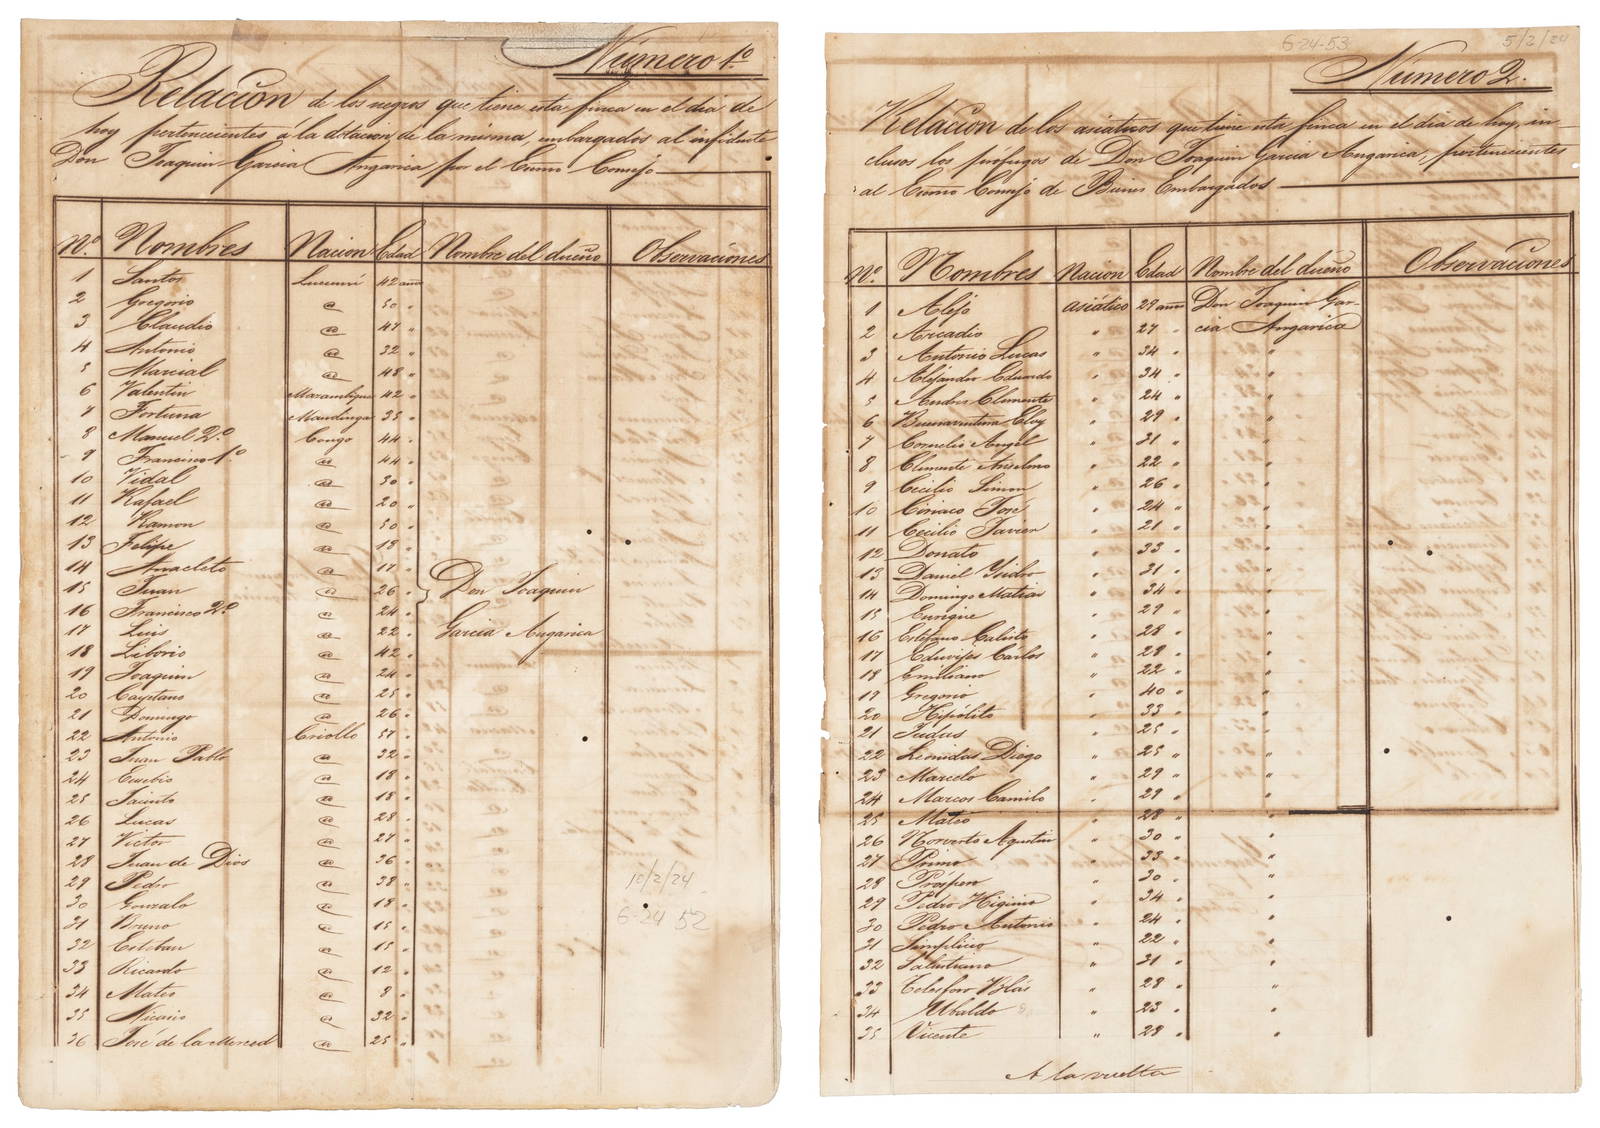 Número 1º
Relacion de los negros que tiene esta finca en el dia de
hoy pertenecientes a la dotacion de la misma, embargados al infidente
Don Joaquin Garcia Angarica por el Exmo Consejo
Nº Nombres Nacion Edad Nombre del dueño Observaciones
1 Santos Lucumí 42 años
2 Gregorio @ 50 "
3 Claudio @ 47 "
4 Antonio @ 32 "
5 Marcial @ 48 "
6 Valentin 42 "
7 Fortuna Mandinga 35 "
8 Manuel 2º Congo 44 "
9 Francisco 1º @ 44 "
10 Vidal @ 30 "
11 Rafael @ 20 "
12 Ramon @ 50 "
13 Felipe @ 18 "
14 Anacleto @ 17 "
15 Juan @ 26 " Don Joaquin
16 Francisco 2º @ 24 "
17 Luis @ 22 " Garcia Angarica
18 Liborio @ 42 "
19 Joaquin @ 24 "
20 Cayetano @ 25 "
21 Domingo @ 26 "
22 Antonio Criollo 57 "
23 Juan Pablo @ 32 "
24 Eusebio @ 18 "
25 Jacinto @ 18 "
26 Lucas @ 28 "
27 Victor @ 27 "
28 Juan de Dios @ 36 "
29 Pedro @ 38 "
30 Gonzalo @ 18 "
31 Bruno @ 15 "
32 Esteban @ 15 "
33 Ricardo @ 12 "
34 Mateo @ 8 "
35 Nicasio @ 32 "
36 José de la Merced @ 25 "
10/2/24
6-24 52
6-24-53
5/2/24
Número 2.
Relacion de los asiaticos que tiene esta finca en el dia de hoy, in-
clusos los prófugos de Don Joaquin Garcia Angarica, pertenecientes
al Exmo Consejo de Bienes Embargados
Nº Nombres Nacion Edad Nombre del dueño Observaciones
1 Alejo asiático 29 años Don Joaquin Gar-
2 Arcadio " 27 " cia Angarica
3 Antonio Lucas " 34 " "
4 Alejandro Eduardo " 34 " "
5 Andres Clemente " 24 " "
6 Buenaventura Eloy " 29 " "
7 Cornelio Angel " 31 " "
8 Clemente Anselmo " 22 " "
9 Cecilio Simon " 26 " "
10 Ciriaco José " 24 " "
11 Cecilio Javier " 21 " "
12 Donato " 33 " "
13 Daniel Ysidro " 31 " "
14 Domingo Matias " 34 " "
15 Enrique " 29 " "
16 Estefano Calisto " 28 " "
17 Eduvijes Cárlos " 28 " "
18 Emiliano " 22 " "
19 Gregorio " 40 " "
20 Hipólito " 33 " "
21 Judas " 25 " "
22 Leonidas Diego " 25 " "
23 Marcelo " 29 " "
24 Marcos Camilo " 29 " "
25 Mateo " 28 " "
26 Norverto Agustin " 30 " "
27 Primo " 33 " "
28 Próspero " 30 " "
29 Pedro Higinio " 34 " "
30 Pedro Antonio " 24 " "
31 Simplicio " 22 " "
32 Salustiano " 31 " "
33 Telesforo Blás " 28 " "
34 Ubaldo " 23 " "
35 Vicente " 28 " "
A la vuelta